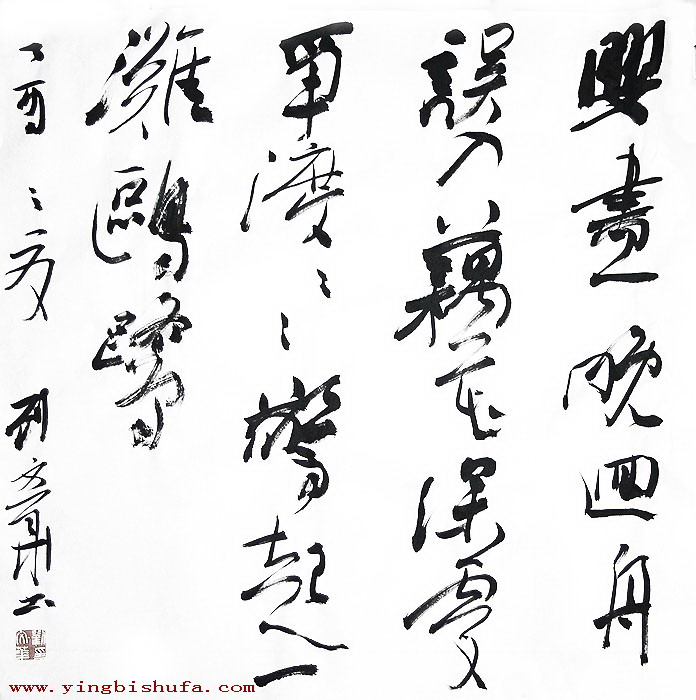 興盡晚迴舟
誤入藕花深處
爭渡〻〻驚起一
灘鷗鷺
丁酉之夏 刘文華书
www.yingbishufa.com